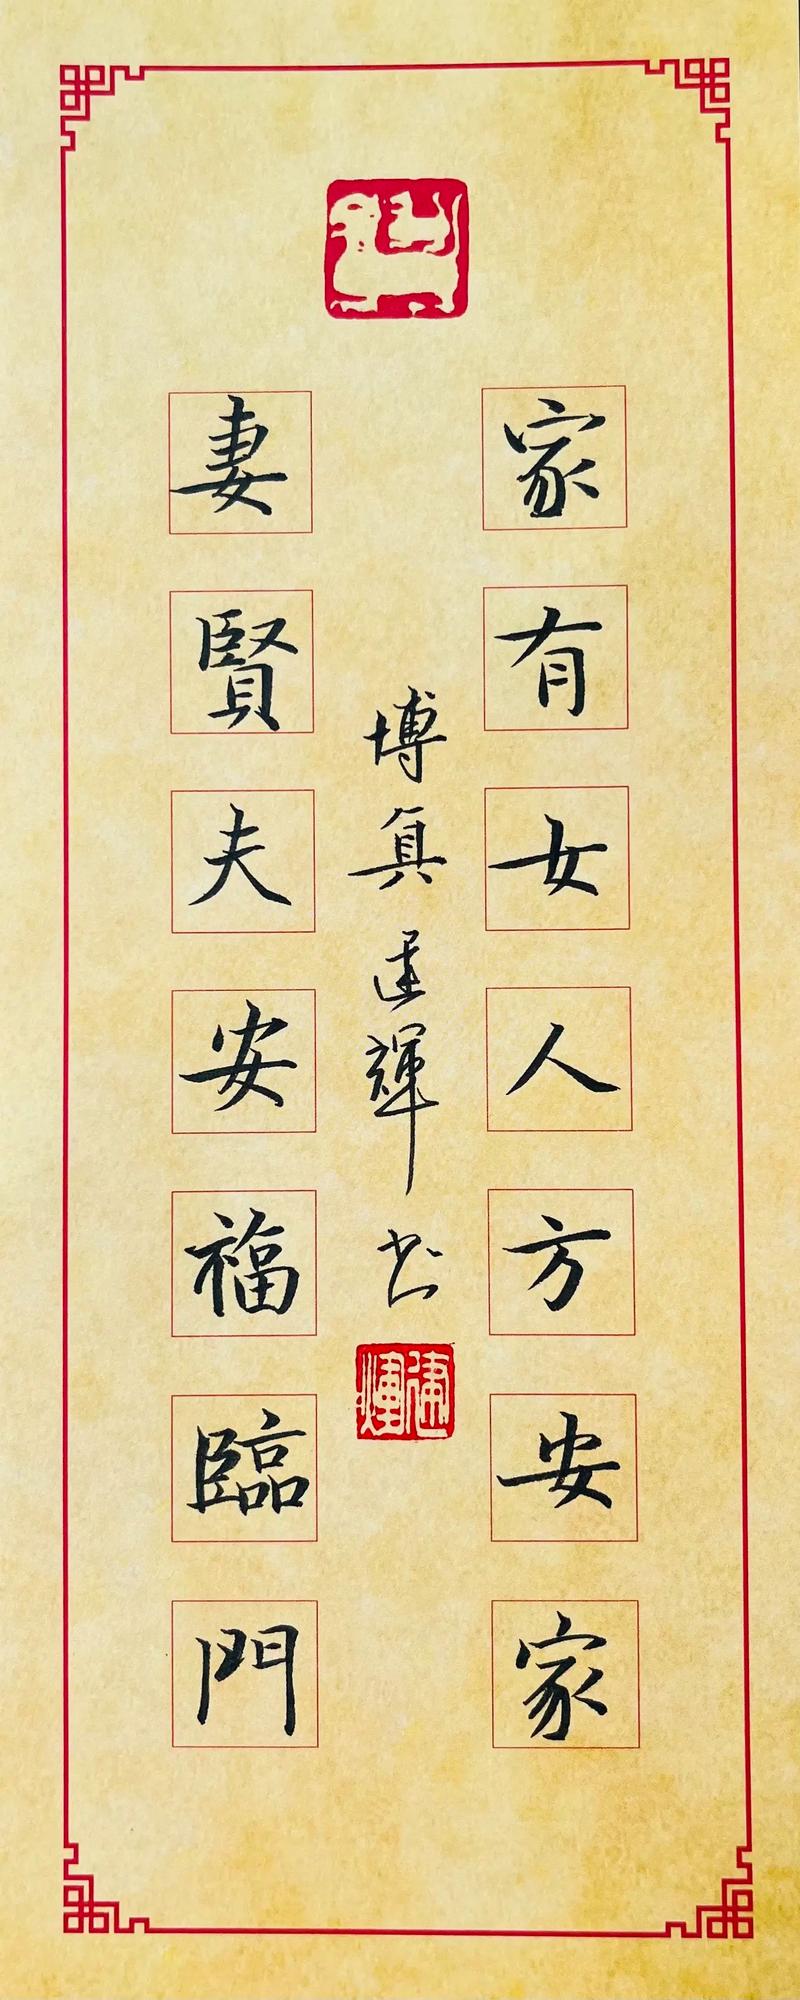 家有女人方安家
妻賢夫安福臨門
博真建輝书
建輝